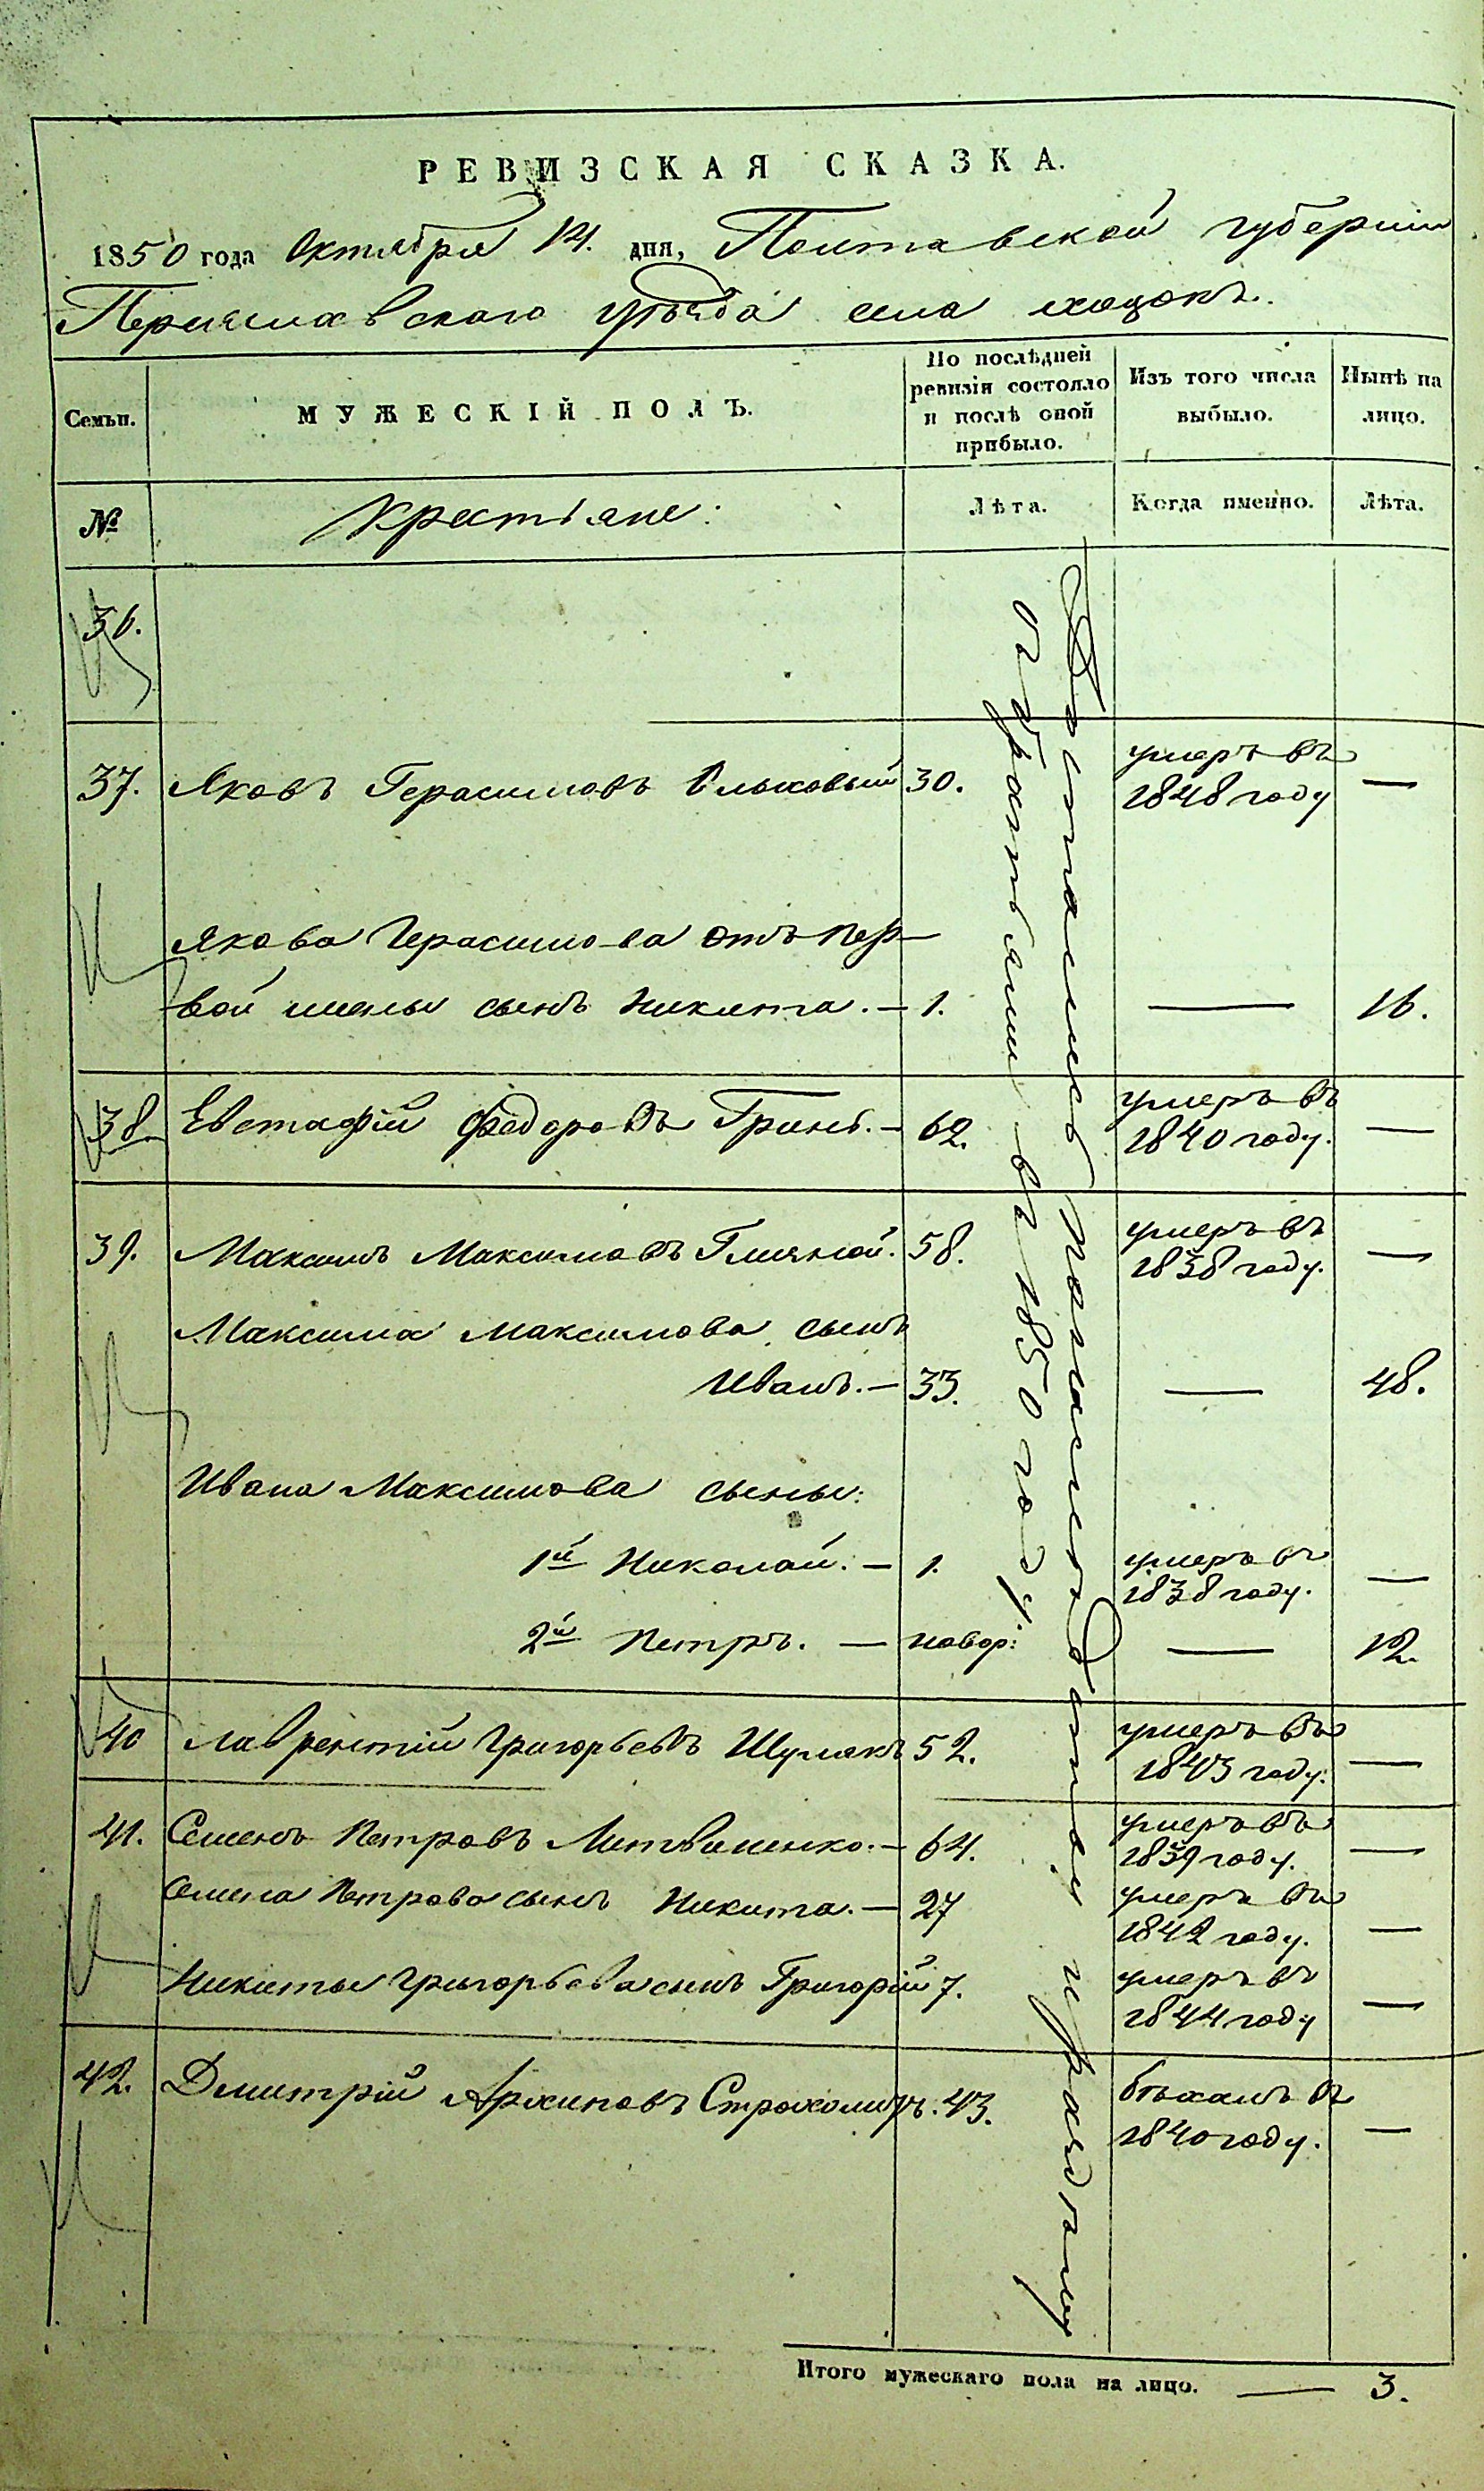 РЕВИЗСКАЯ СКАЗКА.
1850 года Октября 14. дня, Полтавской губернии
Переяславского уѣзда села хоцокъ.
Семьи.
МУЖЕСКІЙ ПОЛЪ.
По послѣдней ревизіи состояло и послѣ оной прибыло.
Изъ того числа выбыло.
Нынѣ на лицо.
№
Крестьяне:
Лѣта.
Когда именно.
Лѣта.
36.
37. Яковъ Герасимовъ 30. умеръ въ 1848 году —
Якова Герасимова отъ пер-
вой жены сынъ Никита. — 1. — 16.
38. Евстафій Федоровъ Гринь. — 62. умеръ въ 1840 году. —
39. Максимъ Максимовъ 58. умеръ въ 1838 году. —
Максима Максимова сынъ
Иванъ. — 33. — 48.
Ивана Максимова сыны:
1й Николай. — 1. умеръ въ 1838 году. —
2й Петръ. — новор: — 12.
40 Лаврентій Григорьевъ Шулякъ 52. умеръ въ 1843 году. —
41. Семенъ Петровъ Литвиненко. — 64. умеръ въ 1839 году. —
Семена Петрова сынъ Никита. — 27 умеръ въ 1842 году. —
Никиты Григорьева сынъ Григорій 7. умеръ въ 1844 году —
42. Дмитрій Архиповъ 43. бѣжалъ въ 1840 году. —
Досталось по
съ братьями въ 1850 году.
Итого мужескаго пола на лицо. — 3.